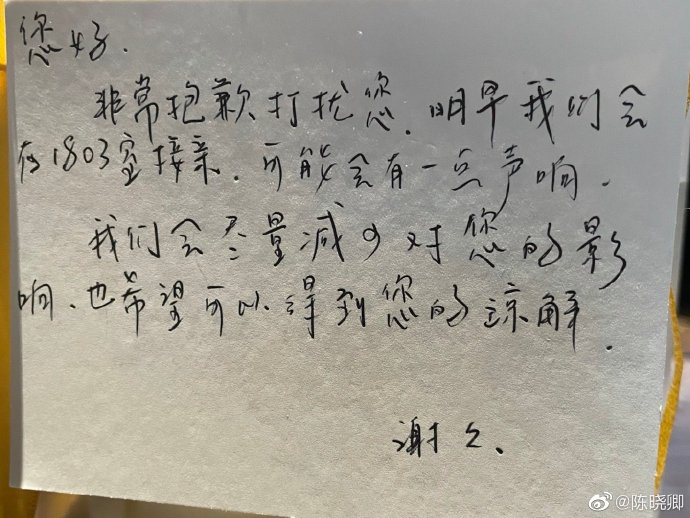 您好.
非常抱歉打扰您.明早我们会
在1803室接亲.可能会有一点声响.
我们会尽量减少对您的影
响.也希望可以得到您的谅解.
谢々.
@陈晓卿